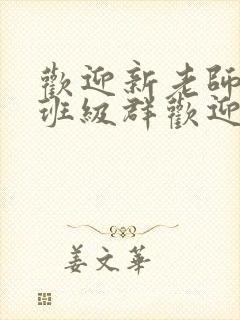 歡迎新老師
班級群歡迎
姜文華